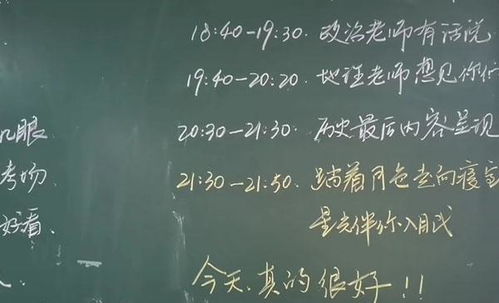 18:40-19:30. 政治老师有话说
19:40-20:20. 地理老师想见你们
20:30-21:30. 历史最后内容呈现
21:30-21:50. 踏着月色走向寝室
星光伴你入眠
今天.真的很好!!
眼
考场
好看.